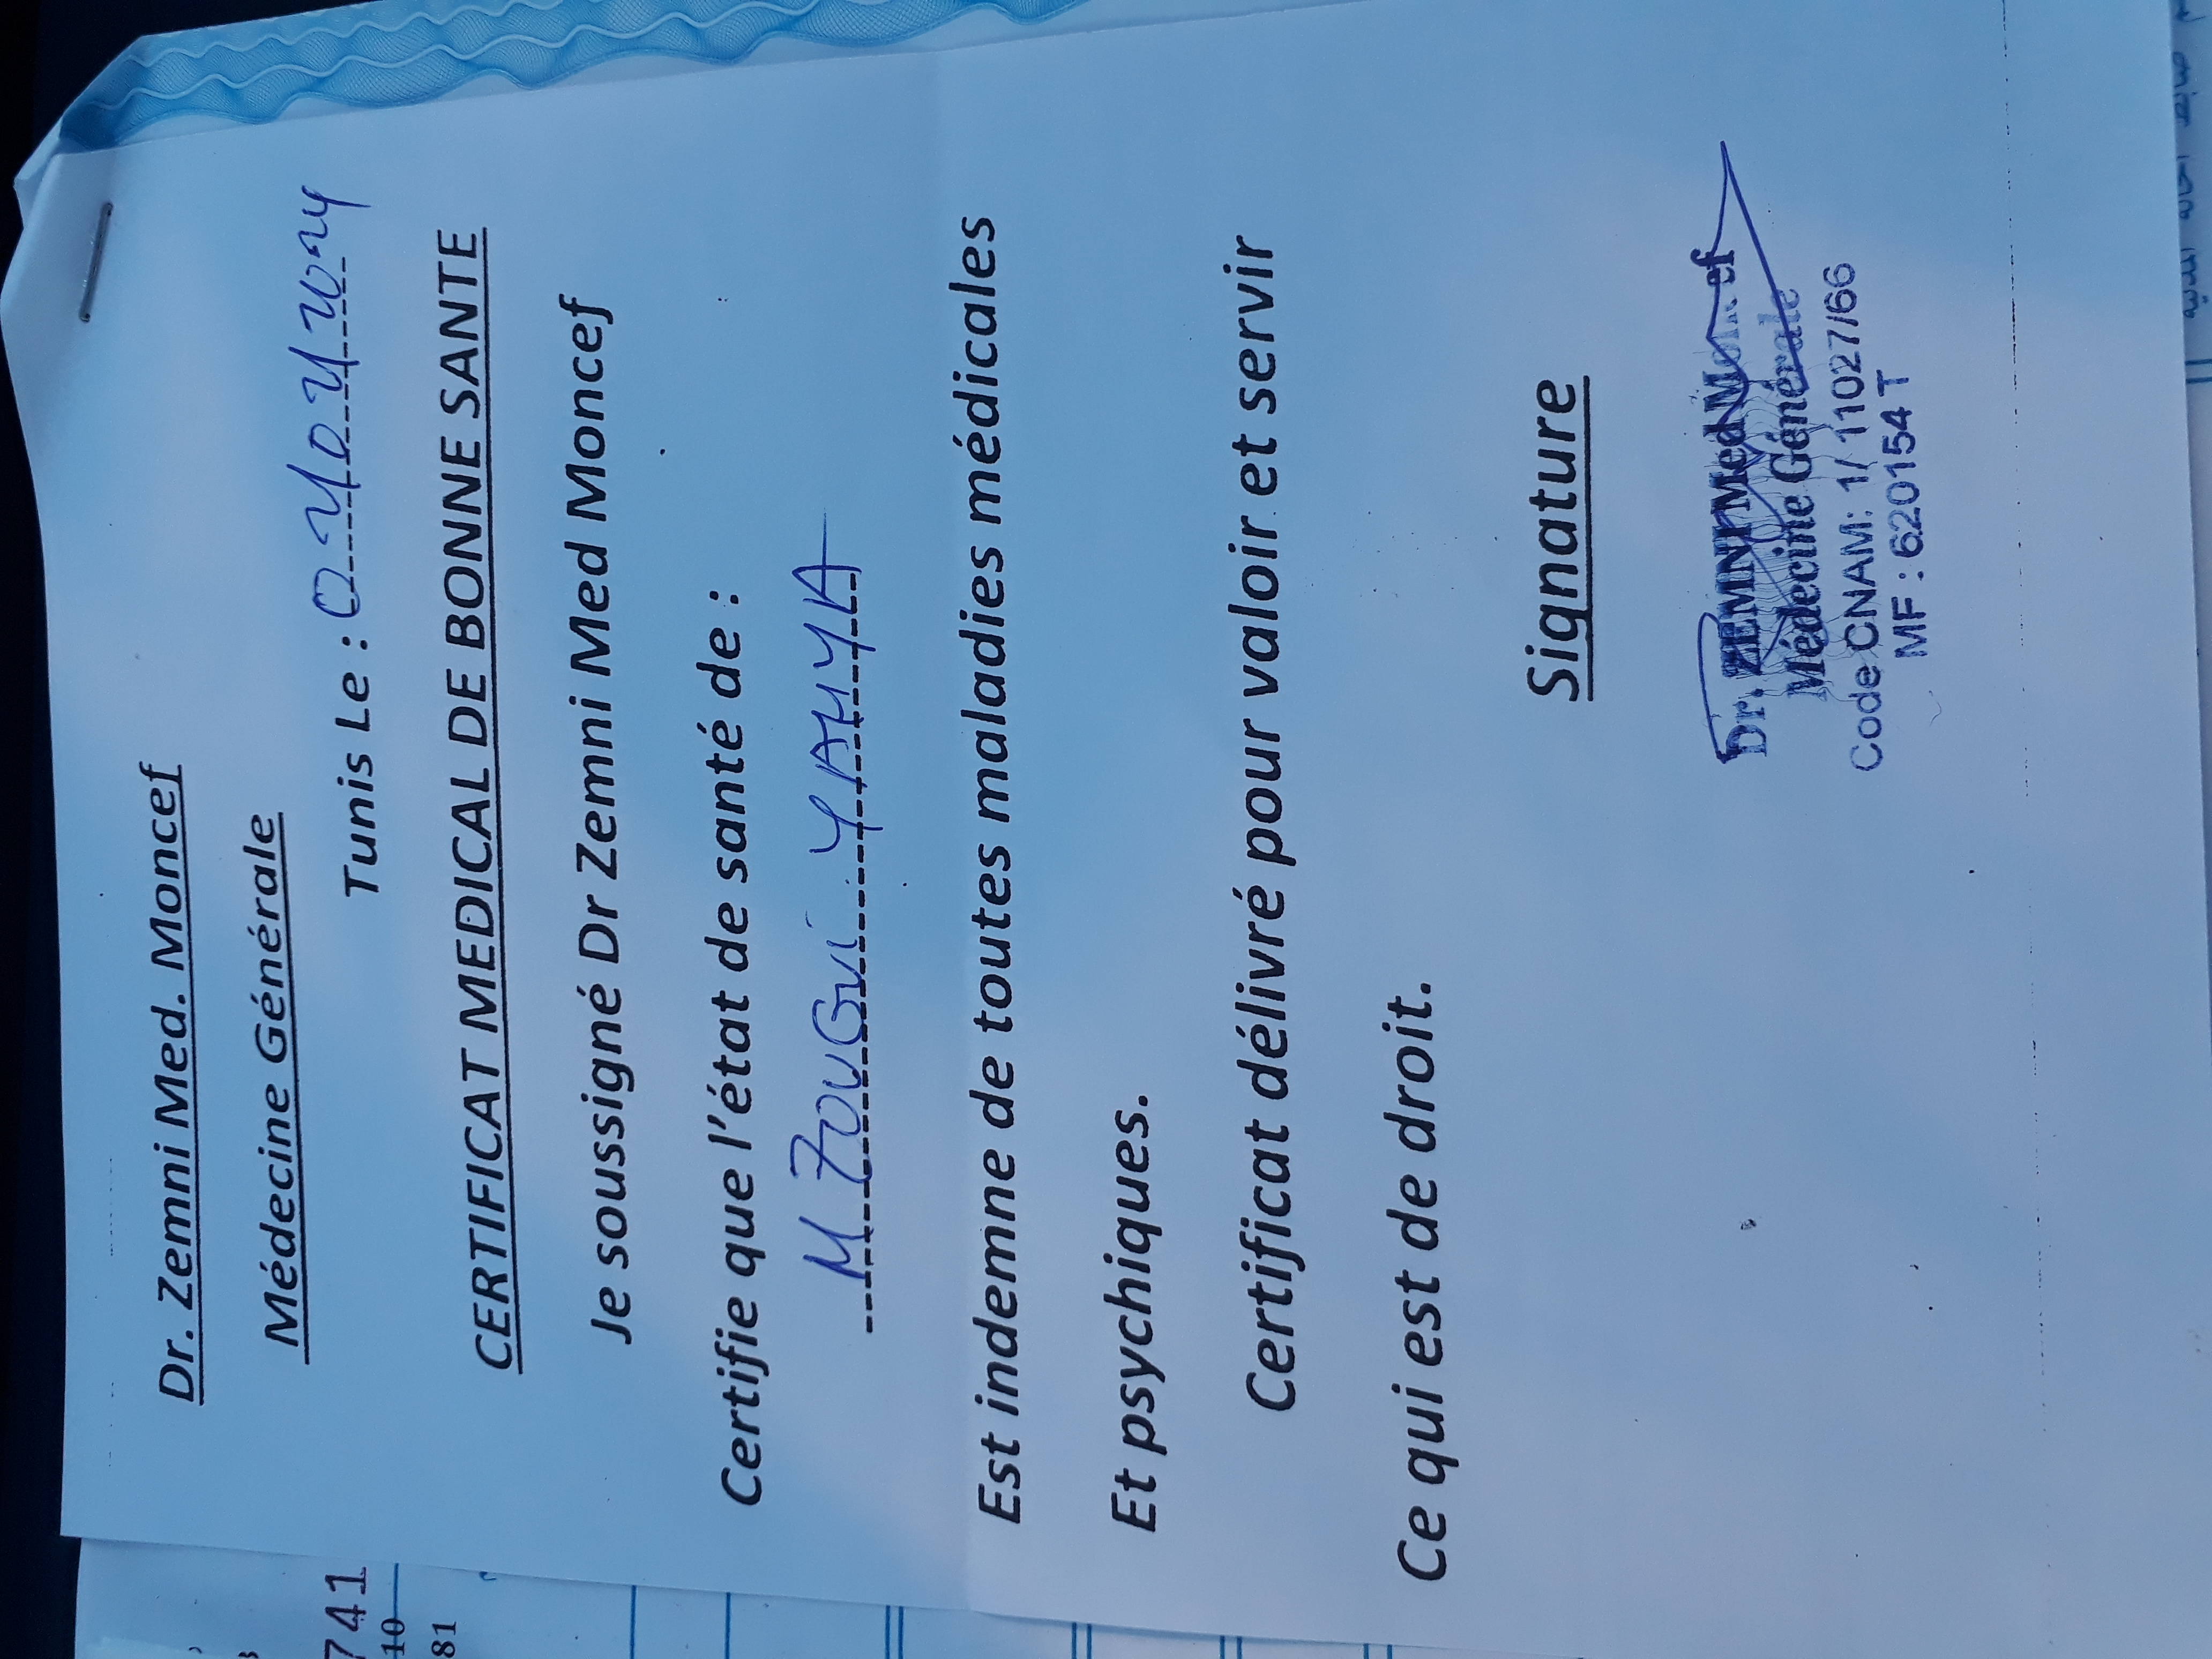 Dr. Zemni Med. Moncef
Médecine Générale
Tunis Le :
CERTIFICAT MEDICAL DE BONNE SANTE
Je soussigné Dr Zemni Med Moncef
Certifie que l'état de santé de :
M ZOUGUI YAHYA
Est indemne de toutes maladies médicales
Et psychiques.
Certificat délivré pour valoir et servir
Ce qui est de droit.
Signature
Dr. ZEMNI Med Moncef
Médecine Générale
Code CNAM: 1/ 11027/66
MF : 620154 T
741
10
81